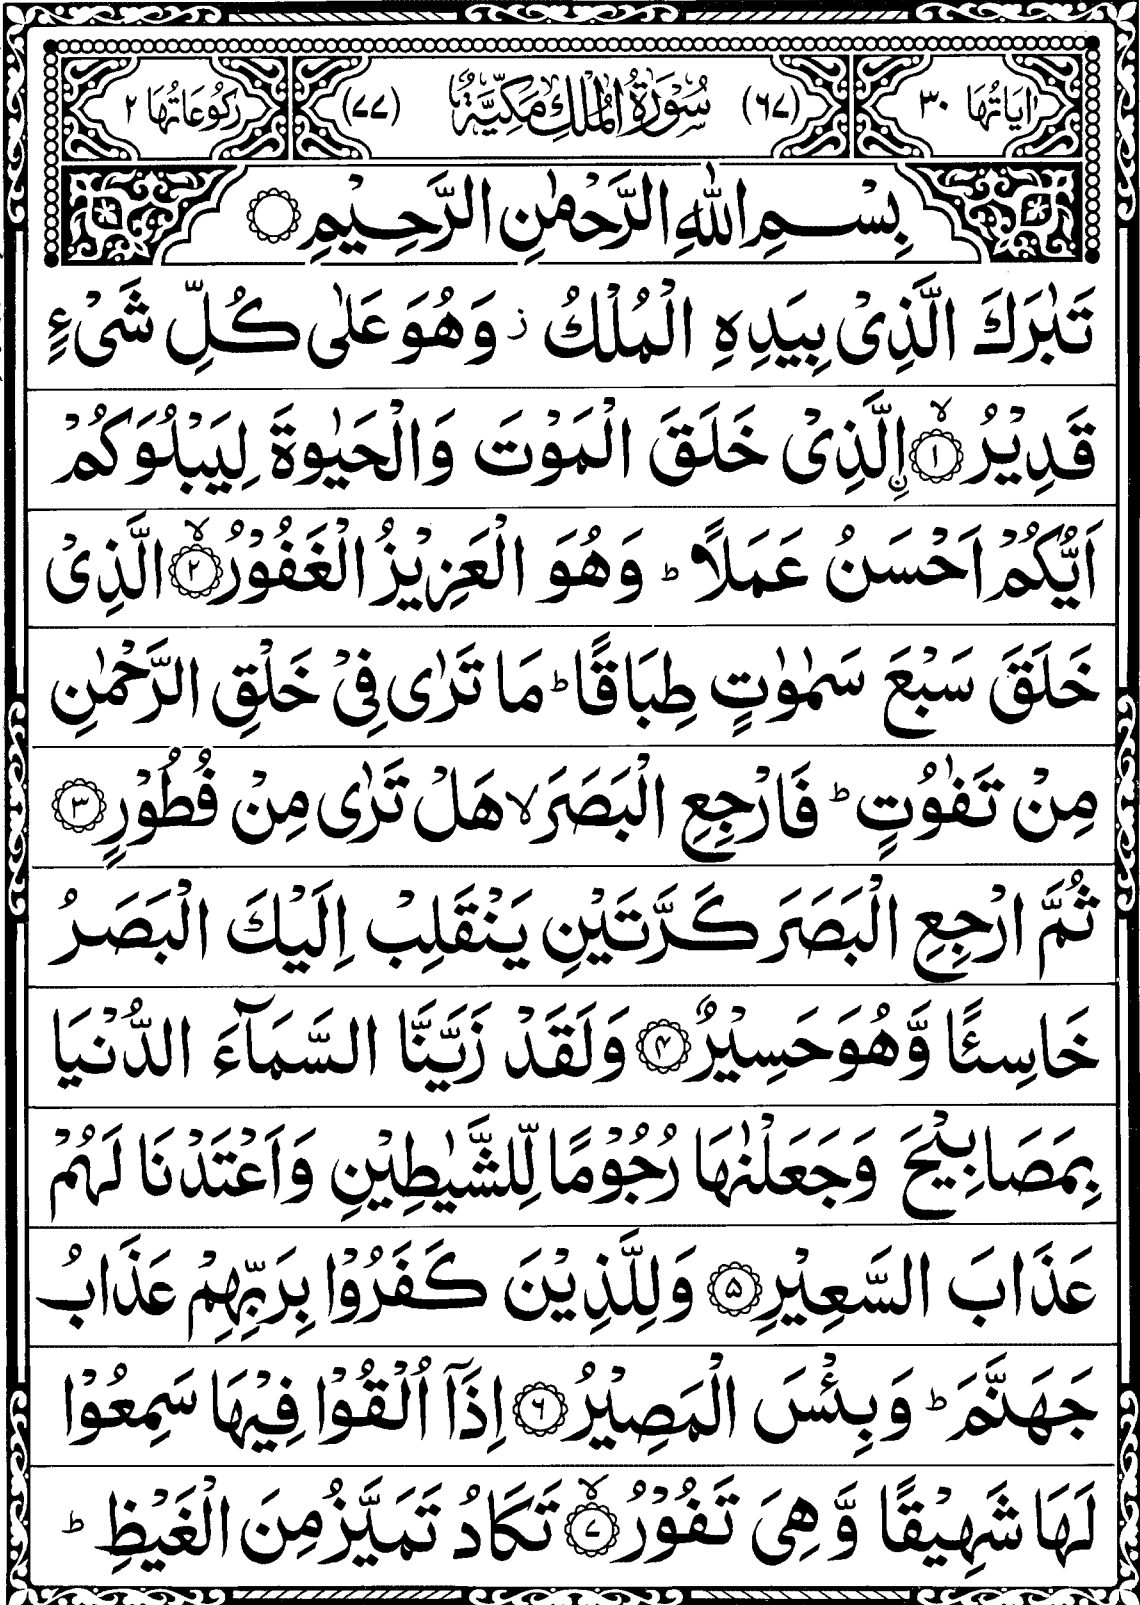 اٰیَاتُهَا ۳۰ (۶۷) سُوْرَةُ الْمُلْكِ مَكِّیَّةٌ (۷۷) رُكُوْعَاتُهَا ۲
بِسْمِ اللّٰهِ الرَّحْمٰنِ الرَّحِیْمِ
تَبٰرَكَ الَّذِیْ بِیَدِهِ الْمُلْكُ ز وَهُوَ عَلٰی كُلِّ شَیْءٍ
قَدِیْرُ ۙ﴿۱﴾ اِ۟لَّذِیْ خَلَقَ الْمَوْتَ وَالْحَیٰوةَ لِیَبْلُوَكُمْ
اَیُّكُمْ اَحْسَنُ عَمَلًا ؕ وَهُوَ الْعَزِیْزُ الْغَفُوْرُ ۙ﴿۲﴾ الَّذِیْ
خَلَقَ سَبْعَ سَمٰوٰتٍ طِبَاقًا ؕ مَا تَرٰی فِیْ خَلْقِ الرَّحْمٰنِ
مِنْ تَفٰوُتٍ ؕ فَارْجِعِ الْبَصَرَ ۙ هَلْ تَرٰی مِنْ فُطُوْرٍ ﴿۳﴾
ثُمَّ ارْجِعِ الْبَصَرَ كَرَّتَیْنِ یَنْقَلِبْ اِلَیْكَ الْبَصَرُ
خَاسِئًا وَّهُوَ حَسِیْرٌ ﴿۴﴾ وَلَقَدْ زَیَّنَّا السَّمَآءَ الدُّنْیَا
بِمَصَابِیْحَ وَجَعَلْنٰهَا رُجُوْمًا لِّلشَّیٰطِیْنِ وَاَعْتَدْنَا لَهُمْ
عَذَابَ السَّعِیْرِ ﴿۵﴾ وَلِلَّذِیْنَ كَفَرُوْا بِرَبِّهِمْ عَذَابُ
جَهَنَّمَ ؕ وَبِئْسَ الْمَصِیْرُ ﴿۶﴾ اِذَآ اُلْقُوْا فِیْهَا سَمِعُوْا
لَهَا شَهِیْقًا وَّهِیَ تَفُوْرُ ۙ﴿۷﴾ تَكَادُ تَمَیَّزُ مِنَ الْغَیْظِ ؕ